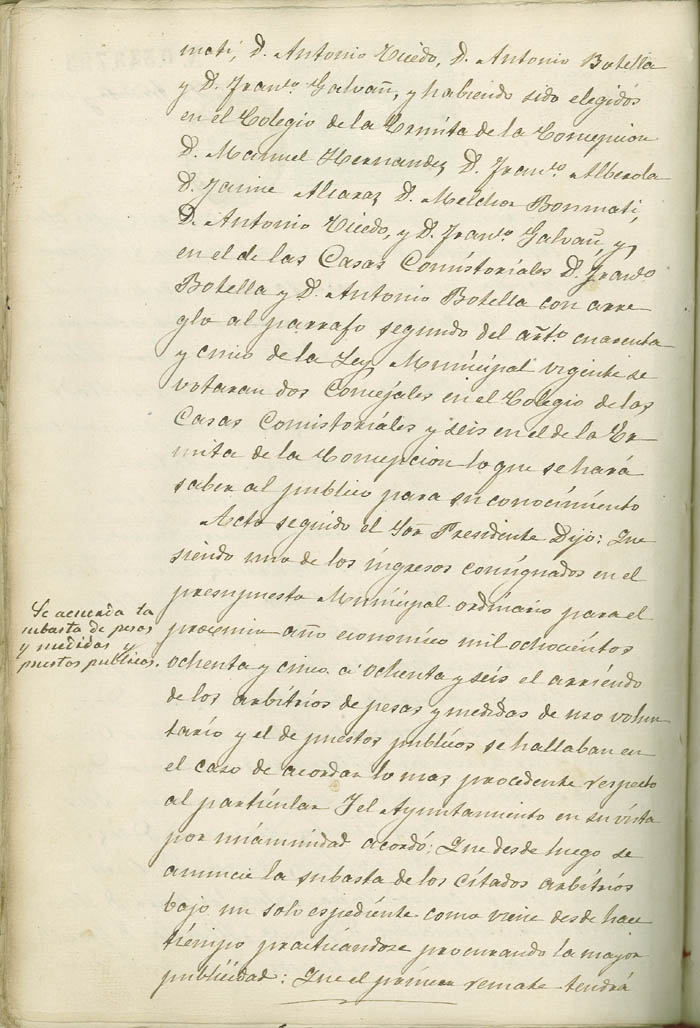 mati, D. Antonio Ucedo, D. Antonio Botella
y D. Franco. Galvañ, y habiendo sido elegidos
en el Colegio de la Ermita de la Concepcion
D. Manuel Hernandez D. Franco. Alberola
D. Jaime Alcaraz D. Melchor Bonmati,
D. Antonio Ucedo, y D. Franco. Galvañ, y,
en el de las Casas Consistoriales D. Franco
Botella y D. Antonio Botella con arre
glo al parrafo segundo del arto. cuarenta
y cinco de la Ley Municipal vigente se
votaran dos Concejales en el Colegio de las
Casas Consistoriales y seis en el de la Er-
mita de la Concepcion lo que se hará
saber al publico para su conocimiento
Acto seguido el Sor. Presidente Dijo: Que
siendo uno de los ingresos consignados en el
presupuesto Municipal ordinario para el
procsimo año economico mil ochocientos
ochenta y cinco a ochenta y seis el arriendo
de los arbitrios de pesas y medidas de uso volun
tario y el de puestos publicos se hallaban en
el caso de acordar lo mas procedente respecto
al particular Y el Ayuntamiento en su vista
por unanimidad acordó: Que desde luego se
anuncie la subasta de los citados arbitrios
bajo un solo espediente como viene desde hace
tiempo practicandose procurando la mayor
publicidad: Que el primer remate tendrá
Se acuerda la
subasta de pesas
y medidas y
puestos publicos.